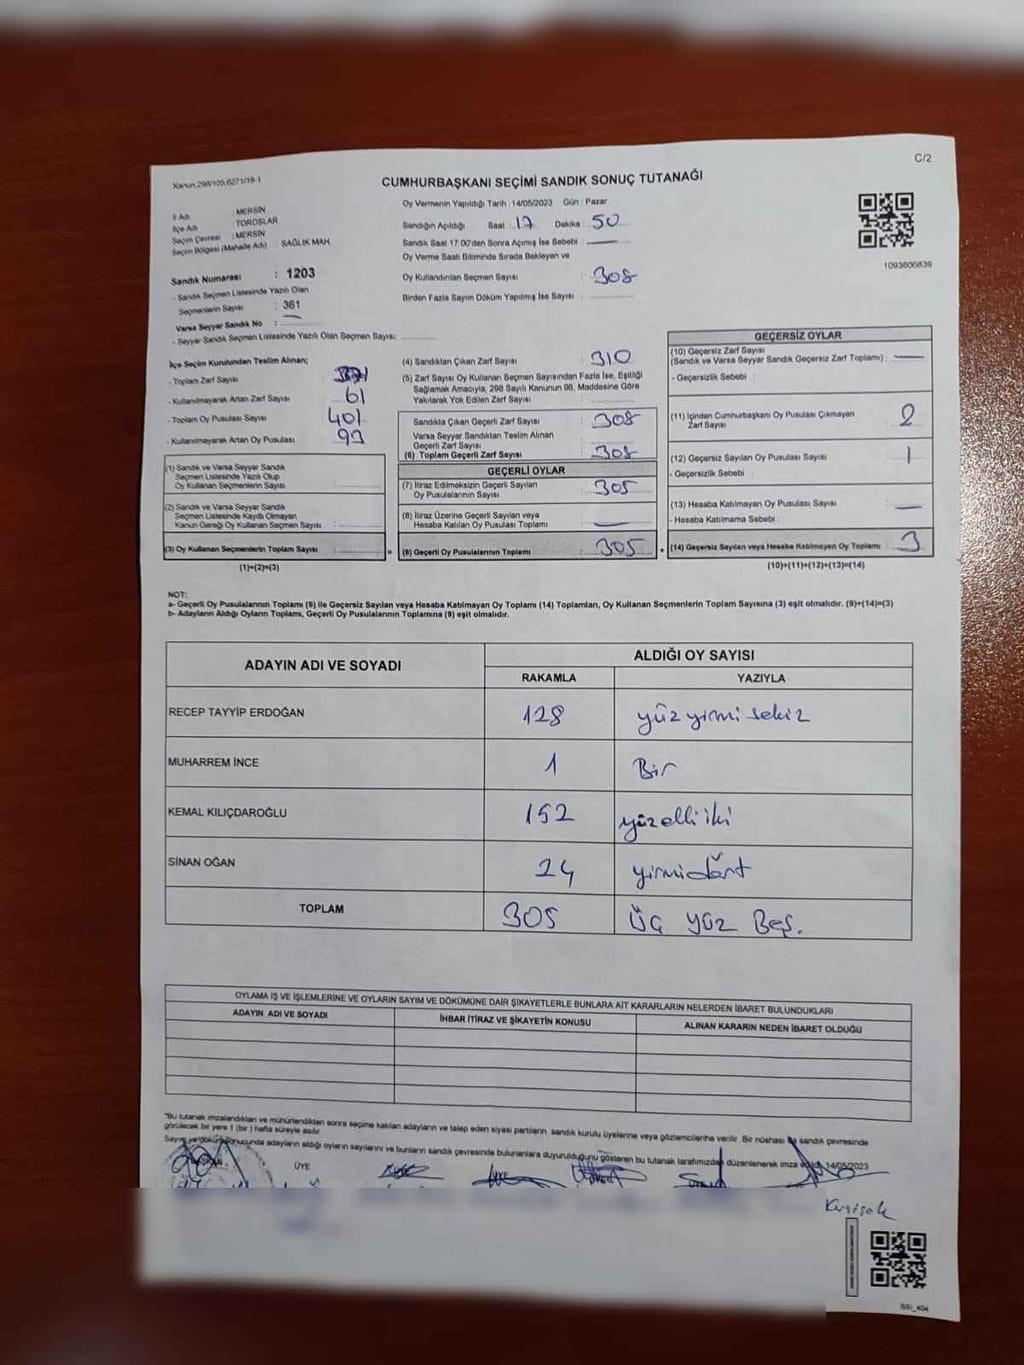 C/2
Kanun,298/105,6271/18-1
CUMHURBAŞKANI SEÇİMİ SANDIK SONUÇ TUTANAĞI
İl Adı : MERSİN
İlçe Adı : TOROSLAR
Seçim Çevresi : MERSİN
Seçim Bölgesi (Mahalle Adı) : SAĞLIK MAH.
Sandık Numarası : 1203
- Sandık Seçmen Listesinde Yazılı Olan
Seçmenlerin Sayısı : 361
Varsa Seyyar Sandık No :
- Seyyar Sandık Seçmen Listesinde Yazılı Olan Seçmen Sayısı:
Oy Vermenin Yapıldığı Tarih : 14/05/2023 Gün : Pazar
Sandığın Açıldığı Saat : 17 Dakika : 50
Sandık Saat 17:00'den Sonra Açımış İse Sebebi :
Oy Verme Saati Bitiminde Sırada Bekleyen ve
Oy Kullandırılan Seçmen Sayısı : 308
Birden Fazla Sayım Döküm Yapılmış İse Sayısı :
1093606839
İlçe Seçim Kurulundan Teslim Alınan;
- Toplam Zarf Sayısı :
- Kullanılmayarak Artan Zarf Sayısı : 61
- Toplam Oy Pusulası Sayısı : 401
- Kullanılmayarak Artan Oy Pusulası : 93
(1) Sandık ve Varsa Seyyar Sandık
Seçmen Listesinde Yazılı Olup
Oy Kullanan Seçmenlerin Sayısı :
(2) Sandık ve Varsa Seyyar Sandık
Seçmen Listesinde Kayıtlı Olmayan
Kanun Gereği Oy Kullanan Seçmen Sayısı :
(3) Oy Kullanan Seçmenlerin Toplam Sayısı : =
(1)+(2)=(3)
(4) Sandıktan Çıkan Zarf Sayısı : 310
(5) Zarf Sayısı Oy Kullanan Seçmen Sayısından Fazla İse, Eşitliği
Sağlamak Amacıyla, 298 Sayılı Kanunun 98. Maddesine Göre
Yakılarak Yok Edilen Zarf Sayısı :
Sandıkta Çıkan Geçerli Zarf Sayısı : 308
Varsa Seyyar Sandıktan Teslim Alınan
Geçerli Zarf Sayısı :
(6) Toplam Geçerli Zarf Sayısı : 308
GEÇERLİ OYLAR
(7) İtiraz Edilmeksizin Geçerli Sayılan
Oy Pusulalarının Sayısı : 305
(8) İtiraz Üzerine Geçerli Sayılan veya
Hesaba Katılan Oy Pusulası Toplamı :
(9) Geçerli Oy Pusulalarının Toplamı : 305 +
GEÇERSİZ OYLAR
(10) Geçersiz Zarf Sayısı
(Sandık ve Varsa Seyyar Sandık Geçersiz Zarf Toplamı) :
- Geçersizlik Sebebi :
(11) İçinden Cumhurbaşkanı Oy Pusulası Çıkmayan
Zarf Sayısı : 2
(12) Geçersiz Sayılan Oy Pusulası Sayısı : 1
- Geçersizlik Sebebi :
(13) Hesaba Katılmayan Oy Pusulası Sayısı :
- Hesaba Katılmama Sebebi :
(14) Geçersiz Sayılan veya Hesaba Katılmayan Oy Toplamı : 3
(10)+(11)+(12)+(13)=(14)
NOT:
a- Geçerli Oy Pusulalarının Toplamı (9) ile Geçersiz Sayılan veya Hesaba Katılmayan Oy Toplamı (14) Toplamları, Oy Kullanan Seçmenlerin Toplam Sayısına (3) eşit olmalıdır. (9)+(14)=(3)
b- Adayların Aldığı Oyların Toplamı, Geçerli Oy Pusulalarının Toplamına (9) eşit olmalıdır.
ADAYIN ADI VE SOYADI ALDIĞI OY SAYISI
RAKAMLA YAZIYLA
RECEP TAYYİP ERDOĞAN 128 yüz yirmi sekiz
MUHARREM İNCE 1 Bir
KEMAL KILIÇDAROĞLU 152 yüzelli iki
SİNAN OĞAN 24 yirmidört
TOPLAM 305 Üç yüz Beş.
OYLAMA İŞ VE İŞLEMLERİNE VE OYLARIN SAYIM VE DÖKÜMÜNE DAİR ŞİKAYETLERLE BUNLARA AİT KARARLARIN NELERDEN İBARET BULUNDUKLARI
ADAYIN ADI VE SOYADI İHBAR İTİRAZ VE ŞİKAYETİN KONUSU ALINAN KARARIN NEDEN İBARET OLDUĞU
"Bu tutanak imzalandıktan ve mühürlendikten sonra seçime katılan adayların ve talep eden siyasi partilerin sandık kurulu üyelerine veya gözlemcilerine verilir .Bir nüshası da sandık çevresinde
görülecek bir yere 1 (bir) hafta süreyle asılır.
Sayım ve döküm sonucunda adayların aldığı oyların sayılarını ve bunların sandık çevresinde bulunanlara duyurulduğunu gösteren bu tutanak tarafımızdan düzenlenerek imza edildi. 14/05/2023
ÜYE
SSI_404